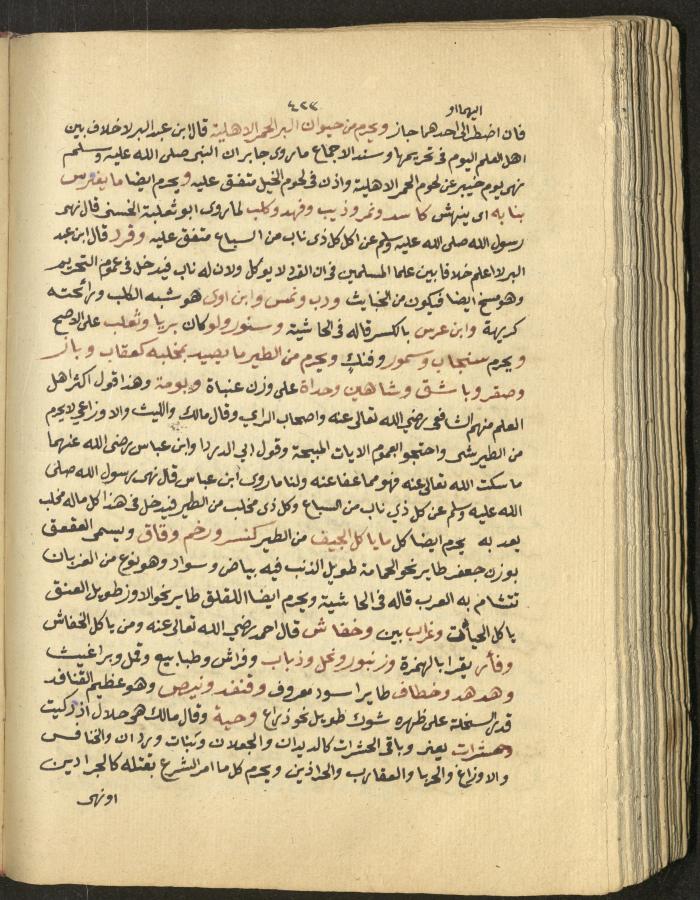 ٤٢٣
اليهما او
فان اضطر الى احدهما جاز ويحرم من حيوان البر الحمر الاهلية قال ابن عبد البر لا خلاف بين
اهل العلم اليوم فى تحريمها وسند الاجماع ما روى جابر ان النبى صلى الله عليه وسلم
نهى يوم خيبر عن لحوم الحمر الاهلية واذن فى لحوم الخيل متفق عليه ويحرم ايضا ما يفترس
بنابه اى ينهش كاسد ونمر وذيب وفهد وكلب لما روى ابو ثعلبة الخشنى قال نهى
رسول الله صلى الله عليه وسلم عن اكل كل ذى ناب من السباع متفق عليه وقرد قال ابن عبد
البر لا اعلم خلافا بين علما المسلمين فى ان القرد لا يوكل ولان له ناب فيدخل فى عموم التحريم
وهو مسخ ايضا فيكون من الخبايث ودب ونمس وابن اوى هو شبه الكلب ورائحته
كريهة وابن عرس بالكسر قاله فى الحاشية وسنور ولو كان بريا وثعلب على الاصح
ويحرم سنجاب وسمور وفنك ويحرم من الطير ما يصيد بمخلبه كعقاب وباز
وصقر وباشق وشاهين وحداة على وزن عنباة وبومة وهذا قول اكثر اهل
العلم منهم الشافعى رضي الله تعالى عنه واصحاب الراي وقال مالك والليث والاوزاعي لا يحرم
من الطير شى واحتجوا بعموم الايات المبيحة وقول ابي الدردا وابن عباس رضى الله عنهما
ما سكت الله تعالى عنه فهو مما عفا عنه ولنا ما روى ابن عباس قال نهى رسول الله صلى
الله عليه وسلم عن كل ذي ناب من السباع وكل ذى مخلب من الطير فيدخل فى هذا كل ماله مخلب
يعد به يحرم ايضا كل ما ياكل الجيف من الطير كنسر ورخم وقاق ويسمى العقعق
بوزن جعفر طاير نحو الحمامة طويل الذنب فيه بياض وسواد وهو نوع من الغربان
تتشام به العرب قاله فى الحاشية ويحرم ايضا اللقلق طاير نحو الاوز طويل العنق
ياكل الحيات وغراب بين وخفاش قال احمد رضي الله تعالى عنه ومن ياكل الخفاش
وفأر يقرا بالهمزة وزنبور ونحل وذباب وفراش وطبابيع وقمل وبراغيث
وهدهد وخطاف طاير اسود معروف وقنفد ونيص وهو عظيم القنافد
قدر السخلة على ظهره شوك طويل نحو ذراع وحية وقال مالك هى حلال اذا ذكيت
وحشرات يعنى وباقى الحشرات كالديدان والجعلان وبنات وردان والخنافس
والاوزاغ والحربا والعقارب والجراذين ويحرم كل ما امر الشرع بقتله كالجرادين
او نهى